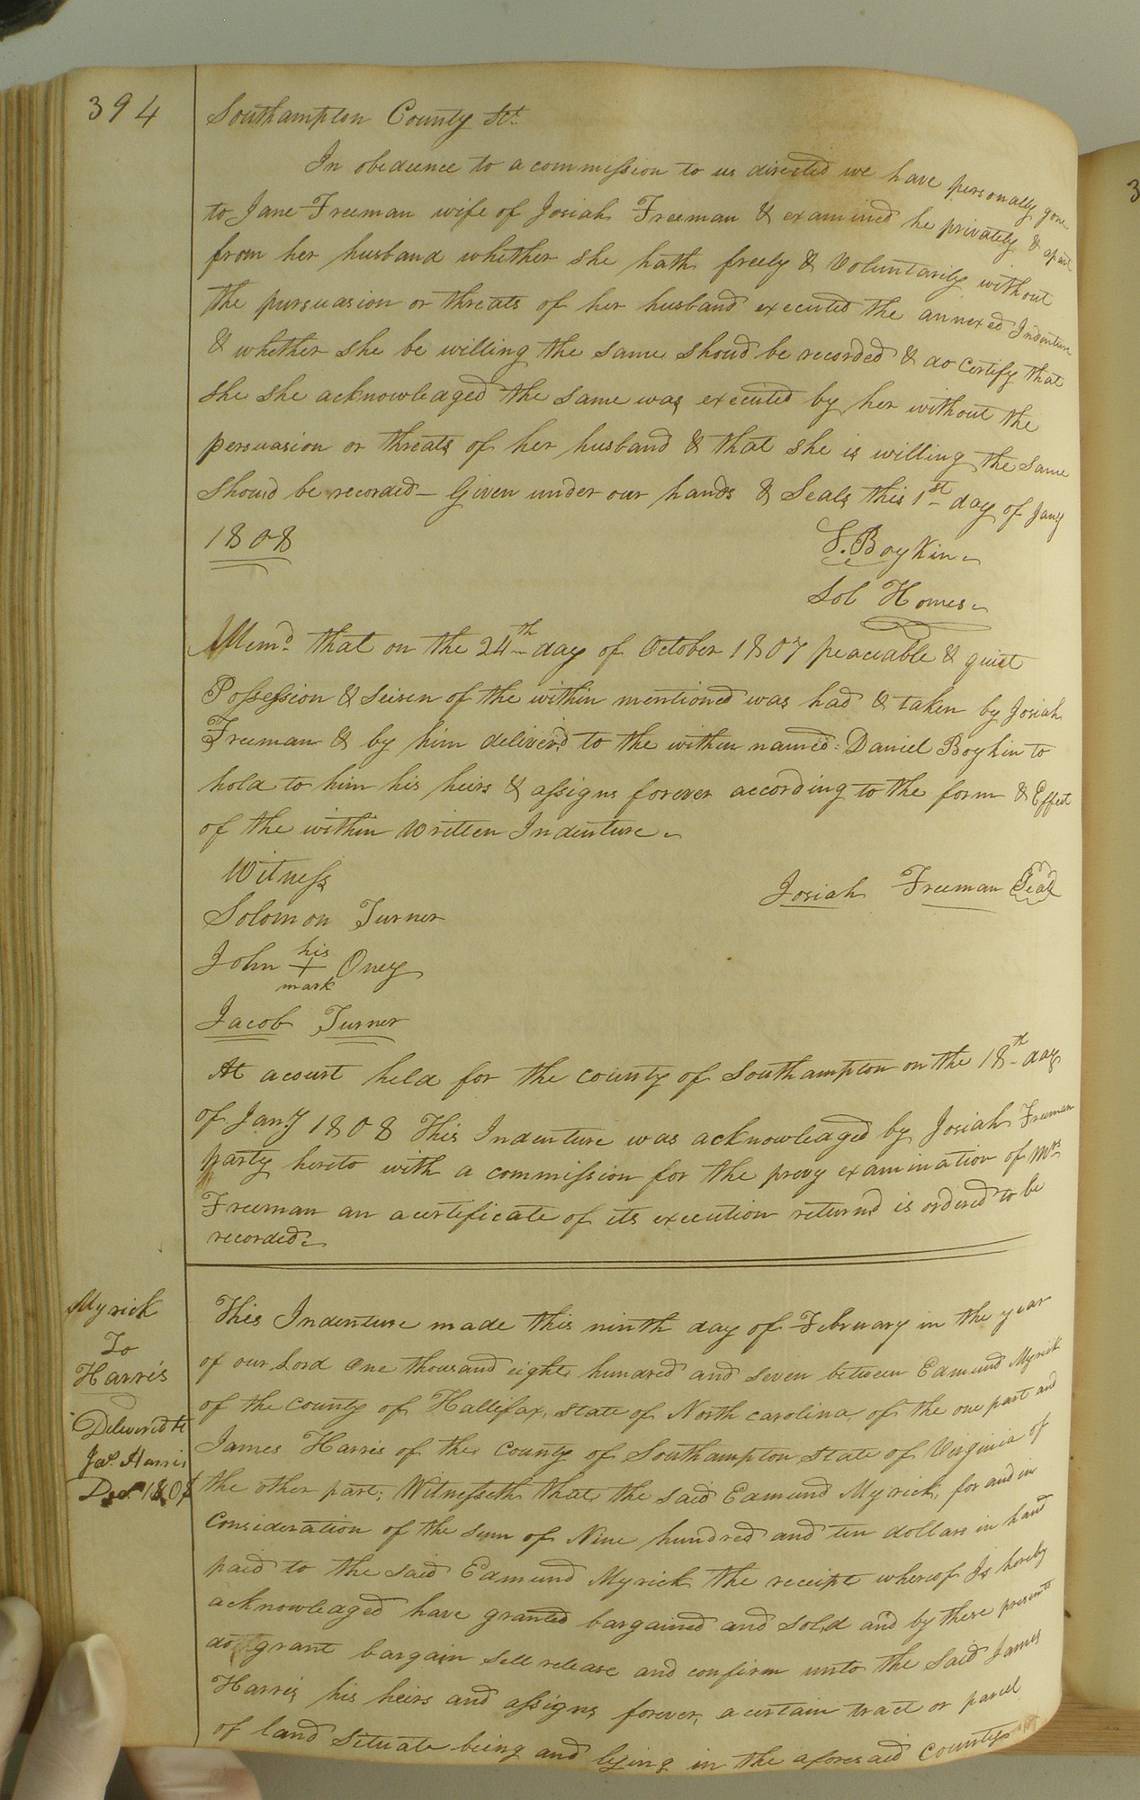 394
Southampton County Sct.
In obedience to a commission to us directed we have personally gone
to Jane Freeman wife of Josiah Freeman & examined he privately & apart
from her husband whether she hath freely & Voluntarily without
the pursuasion or threats of her husband executed the annexed Indenture
& whether she be willing the same shoud be recorded & do certify that
she she acknowledged the same was executed by her without the
persuasion or threats of her husband & that she is willing the same
should be recorded — Given under our hands & Seals this 1st day of Jany
1808
S. Boykin
Sol Homes
Memd. that on the 24th day of October 1807 peaceable & quiet
Possession & seisen of the within mentioned was had & taken by Josiah
Freeman & by him deliverd to the within named: Daniel Boykin to
hold to him his heirs & assigns forever according to the form & Effect
of the within Written Indenture
Witness
Josiah Freeman Seal
Solomon Turner
John his + mark Oney
Jacob Turner
At a court held for the county of Southampton on the 18th day
of Jany 1808 This Indenture was acknowledged by Josiah Freeman
party hereto with a commission for the prevy examination of Mrs.
Freeman an a certificate of its execution returnd is ordered to be
recorded
Myrick
To
Harris
Deliverd to
Jas. Harris
Decr 1807
This Indenture made this ninth day of February in the year
of our Lord One thousand eight hundred and seven between Edmund Myrick
of the County of Hallifax, state of North carolina, of the one part and
James Harris of the County of Southampton state of Virginia of
the other part; Witnesseth that the said Edmund Myrick, for and in
Consideration of the sum of Nine hundred and ten dollars in hand
paid to the said Edmund Myrick the receipt whereof Is hereby
acknowledged have granted bargained and sold and by these presents
do grant bargain sell release and confirm unto the Said James
Harris his heirs and assigns forever, a certain tract or parcel
of land Situate being and lying in the aforesaid County